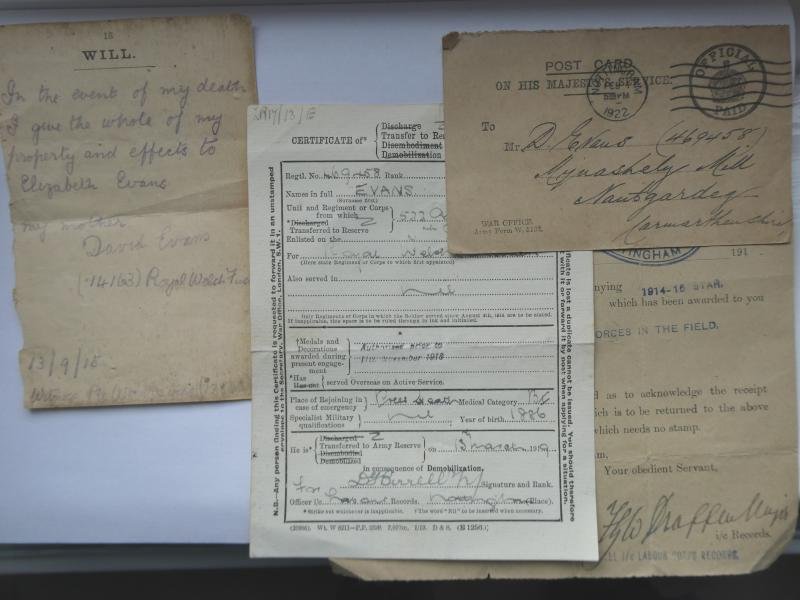 15
WILL.
In the event of my death
I give the whole of my
property and effects to
Elizabeth Evans
my mother
David Evans
(14163) Royal Welsh Fus
13/9/15
Witness
CERTIFICATE of*
Discharge
Transfer to Re
Disembodiment
Demobilization
Regtl. No. 469458 Rank
Names in full EVANS
(Surname first)
Unit and Regiment or Corps
from which
*Discharged
Transferred to Reserve
522
Enlisted on the
For Royal Welsh
(Here state Regiment or Corps to which first appointed)
Also served in
Nil
Only Regiments or Corps in which the Soldier served since August 4th, are to be stated.
If inapplicable, this space is to be ruled through in ink and initialled.
†Medals and
Decorations
awarded during
present engage-
ment
Authorised prior to
11th November 1918
*Has
Has not
served Overseas on Active Service.
Place of Rejoining in
case of emergency
Medical Category
Specialist Military
qualifications
nil
Year of birth 1886
He is*
Discharged
Transferred to Army Reserve
Disembodied
Demobilized
Z
on 13 March 1919
in consequence of Demobilization.
Birrell
Signature and Rank.
For
Officer i/c Labour Records. Nottingham (Place).
*Strike out whichever is inapplicable. †The word "Nil" to be inserted when necessary.
N.B.—Any person finding this Certificate is requested to forward it in an unstamped
envelope to the Secretary, War Office, London, S.W. 1.
certificate is lost a duplicate cannot be issued. You should therefore
with it or forward it by post when applying for a situation.
POST CARD
ON HIS MAJESTY'S SERVICE.
NOTTINGHAM
FEB
PM
1922
OFFICIAL
PAID
To
Mr. D. Evans (469458)
Mill
Nantgaredig
Carmarthenshire
WAR OFFICE.
TTINGHAM
191
nying 1914-15 STAR.
which has been awarded to you
ORCES IN THE FIELD.
d as to acknowledge the receipt
ich is to be returned to the above
needs no stamp.
Your obedient Servant,
i/c Records.
I/c LABOUR CORPS RECORDS.